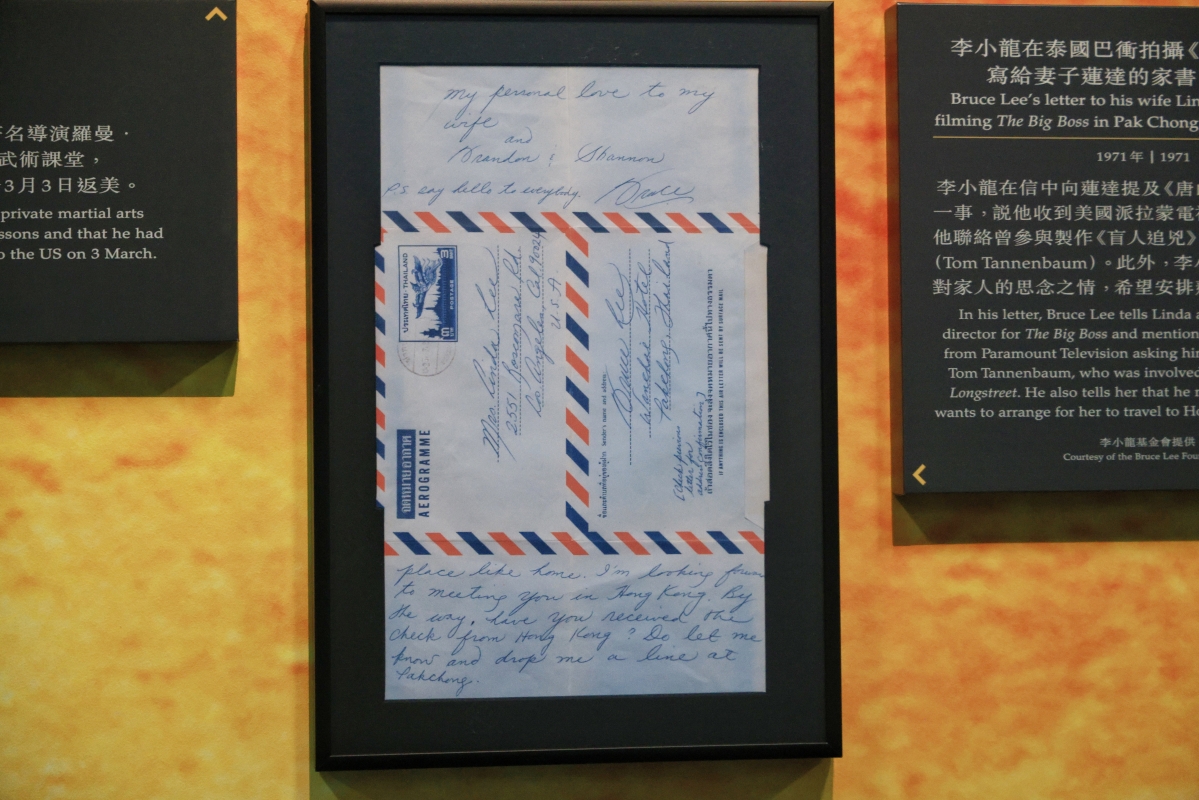 名導演羅曼·
武術課堂，
3月3日返美。
private martial arts
ssons and that he had
o the US on 3 March.
my personal love to my
wife
and
Brandon & Shannon
P.S. say hello to everybody. Bruce
ประเทศไทย THAILAND
POSTAGE
จดหมายอากาศ
AEROGRAMME
Mrs. Linda Lee
2551 Roscomare Rd.
Los Angeles, Cal. 90024
U.S.A.
Sender's name and address
Bruce Lee
Hotel
Pakchong, Thailand
(Check previous
letter for
address confirmation)
IF ANYTHING IS ENCLOSED THIS AIR LETTER WILL BE SENT BY SURFACE MAIL
place like home. I'm looking forw
to meeting you in Hong Kong. By
the way, have you received the
check from Hong Kong? Do let me
know and drop me a line at
Pakchong.
李小龍在泰國巴衝拍攝《
寫給妻子蓮達的家書
Bruce Lee's letter to his wife Lin
filming The Big Boss in Pak Chong
1971年 | 1971
李小龍在信中向蓮達提及《唐
一事，説他收到美國派拉蒙電
他聯絡曾參與製作《盲人追兇》
(Tom Tannenbaum)。此外，李小
對家人的思念之情，希望安排
In his letter, Bruce Lee tells Linda a
director for The Big Boss and mention
from Paramount Television asking him
Tom Tannenbaum, who was involved
Longstreet. He also tells her that he
wants to arrange for her to travel to Ho
李小龍基金會提供
Courtesy of the Bruce Lee Fou